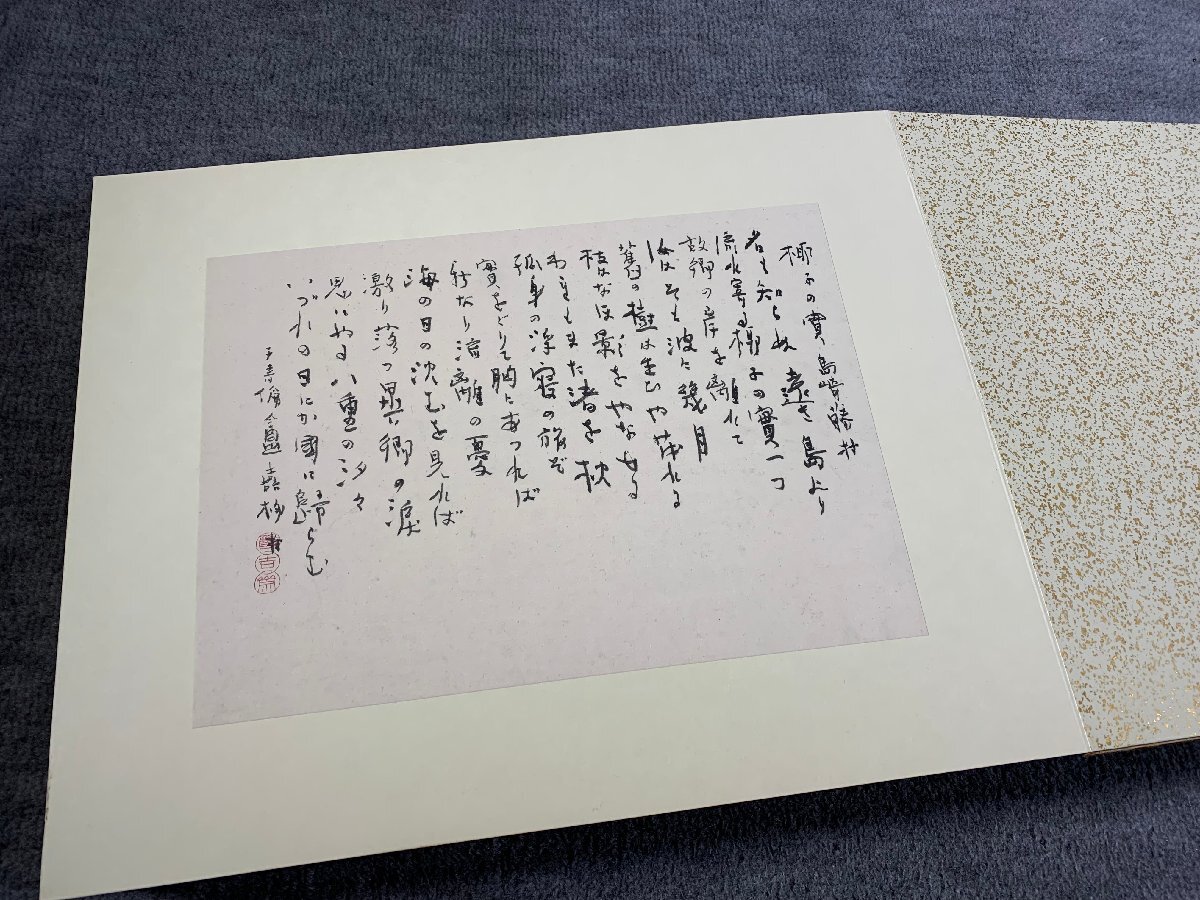 椰子の實 島崎藤村
名も知らぬ遠き島より
流れ寄る椰子の實一つ
故郷の岸を離れて
汝はそも波に幾月
舊の樹は生ひや茂れる
枝はなほ影をやなせる
われもまた渚を枕
孤身の浮寝の旅ぞ
實をとりて胸にあつれば
新なり流離の憂
海の日の沈むを見れば
激り落つ異郷の涙
思ひやる八重の汐々
いづれの日にか國に歸らむ